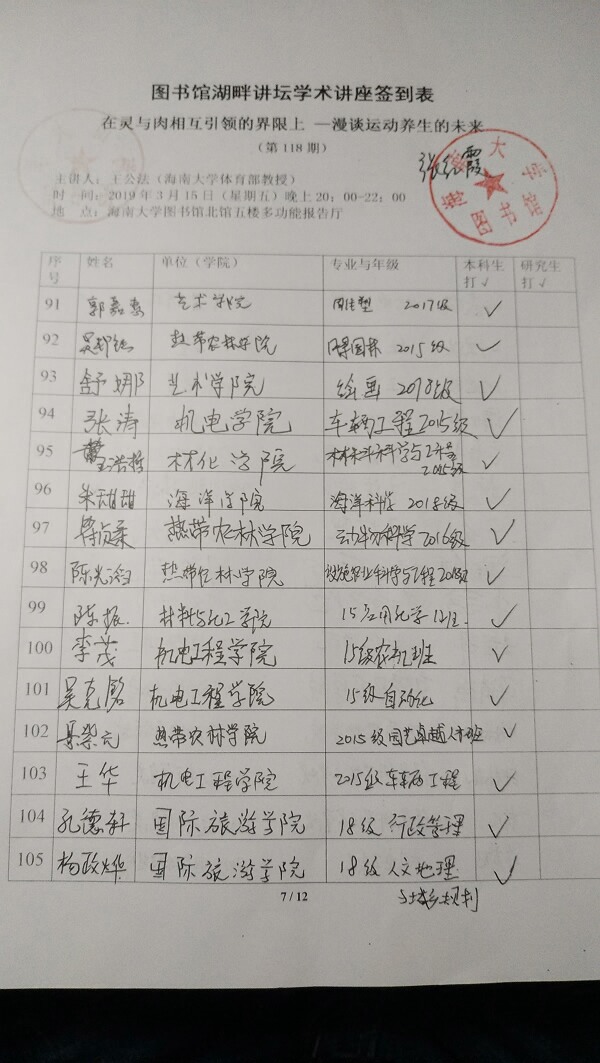 图书馆湖畔讲坛学术讲座签到表
在灵与肉相互引领的界限上 —漫谈运动养生的未来
(第 118 期)
主讲人：王公法（海南大学体育部教授）
时 间：2019 年 3 月 15 日（星期五）晚上 20：00-22：00
地 点：海南大学图书馆北馆五楼多功能报告厅
海南大学图书馆
序号 姓名 单位（学院） 专业与年级 本科生打√ 研究生打√
91 郭嘉 艺术学院 2017级 √
92 热带农林学院 园林 2015级 √
93 舒娜 艺术学院 绘画 2018级 √
94 张涛 机电学院 车辆工程2015级 √
95 浩哲 材化学院 材料科学与工程2015级 √
96 朱甜甜 海洋学院 海洋科学 2018级 √
97 热带农林学院 动物科学 2016级 √
98 陈光 热带农林学院 设施农业科学与工程2018级 √
99 陈振 材料与化工学院 15应用化学 √
100 李茂 机电工程学院 15级农机班 √
101 吴克 机电工程学院 15级自动化 √
102 热带农林学院 2015级园艺卓越人才班 √
103 王华 机电工程学院 2015级车辆工程 √
104 孔德轩 国际旅游学院 18级 行政管理 √
105 杨政烨 国际旅游学院 18级 人文地理 √
与城乡规划
7 / 12